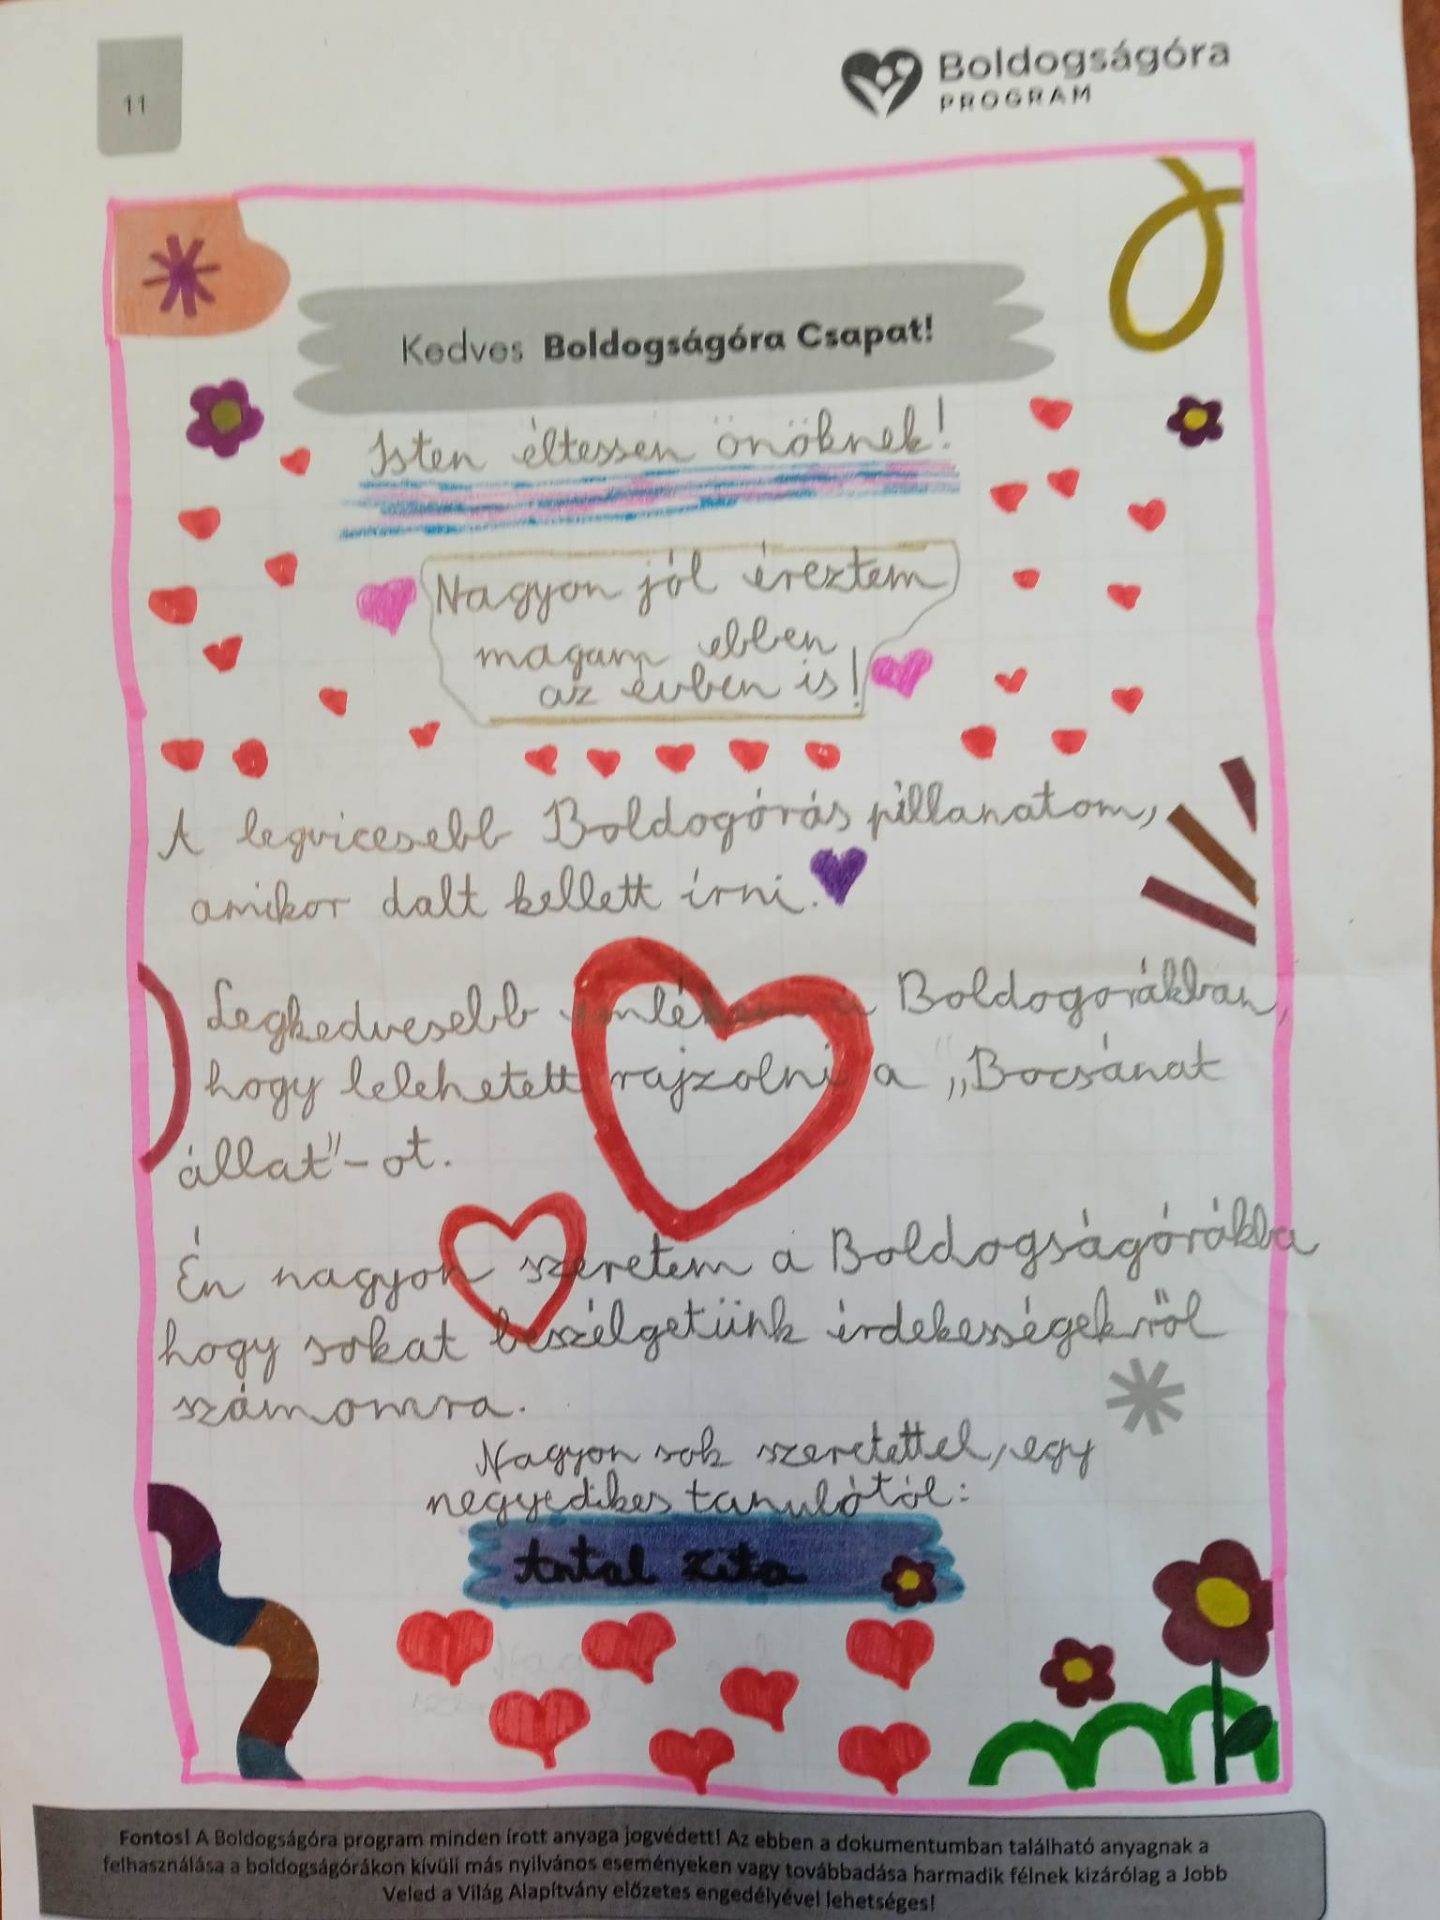 11
Boldogságóra
PROGRAM
Kedves Boldogságóra Csapat!
Isten éltessen önöknek!
Nagyon jól éreztem
magam ebben
az évben is!
A legviccesebb Boldogórás pillanatom,
amikor dalt kellett írni.
Legkedvesebb emlékem a Boldogorákban,
hogy lelehetett rajzolni a „Bocsánat
állat"-ot.
Én nagyon szeretem a Boldogságórákba
hogy sokat beszélgetünk érdekességekről
számomra.
Nagyon sok szeretettel, egy
negyedikes tanulótól:
Antal Zita
Fontos! A Boldogságóra program minden írott anyaga jogvédett! Az ebben a dokumentumban található anyagnak a
felhasználása a boldogságórákon kívüli más nyilvános eseményeken vagy továbbadása harmadik félnek kizárólag a Jobb
Veled a Világ Alapítvány előzetes engedélyével lehetséges!